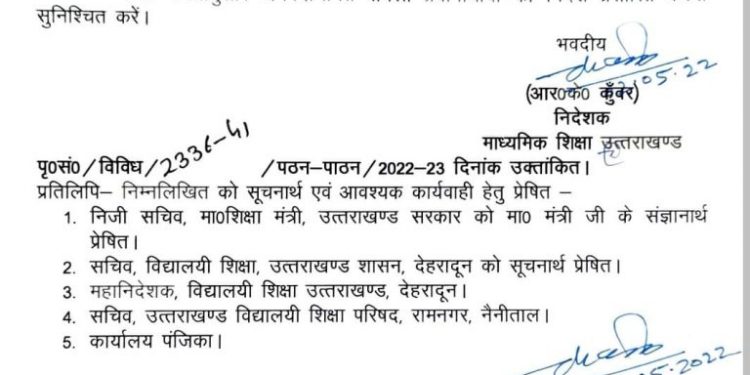 सुनिश्चित करें।
भवदीय
05.22
(आर0के0 कुँवर)
निदेशक
माध्यमिक शिक्षा उत्तराखण्ड
पृ0सं0/विविध/2336-41 /पठन-पाठन/2022-23 दिनांक उक्तांकित।
प्रतिलिपि– निम्नलिखित को सूचनार्थ एवं आवश्यक कार्यवाही हेतु प्रेषित –
1. निजी सचिव, मा0शिक्षा मंत्री, उत्तराखण्ड सरकार को मा0 मंत्री जी के संज्ञानार्थ
प्रेषित।
2. सचिव, विद्यालयी शिक्षा, उत्तराखण्ड शासन, देहरादून को सूचनार्थ प्रेषित।
3. महानिदेशक, विद्यालयी शिक्षा उत्तराखण्ड, देहरादून।
4. सचिव, उत्तराखण्ड विद्यालयी शिक्षा परिषद, रामनगर, नैनीताल।
5. कार्यालय पंजिका।
05.2022